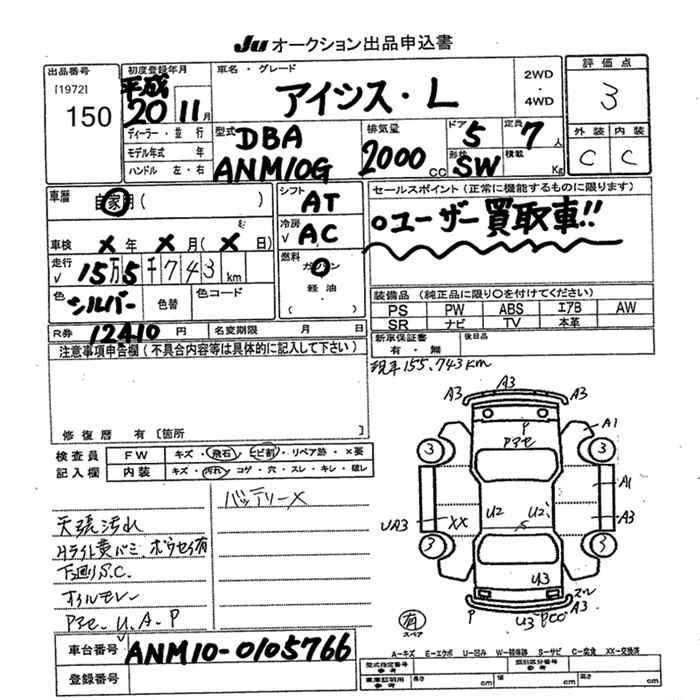 Ju オークション出品申込書
出品番号
[1972]
150
初度登録年月
平成
20 11月
車名・グレード
アイシス・L
2WD
・
4WD
評価点
3
外装 内装
C C
ディーラー・並行
モデル年式 年
ハンドル 左・右
型式
DBA
ANM10G
排気量
2000 CC
ドア 5
形状 SW
定員 7人
積載 Kg
車歴
自家用( )
車検 × 年 × 月(×日)
走行
√ 15万5千743km
色 シルバー 色替 色コード
R券 12410 円 名変期限 月 日
シフト AT
冷房 √ AC
燃料
ガソリン
軽油
( )
セールスポイント(正常に機能するものに限ります)
○ユーザー買取車!!
装備品(純正品に限り○を付けてください)
PS PW ABS エアB AW
SR ナビ TV 本革
新車保証書 有・無
後日品
現車155,743km
注意事項申告欄(不具合内容等は具体的に記入して下さい)
修復歴 有〔箇所
検査員記入欄
FW キズ・飛石・ヒビ割・リペア跡・×要
内装 キズ・汚れ・コゲ・穴・スレ・キレ・破レ
バッテリー×
天張汚れ
Hライト黄バミ、ボウセイ有
下廻りS.C.
オイルモレー
Pアセ、U.A.P
A3 A3 A3
P
Pアセ
A1
3 3
A1
UA3 XX U2 U2 A3
S
3 3
U3
スレ
A3
有
スペア
P U3 PCC
A-キズ E-エクボ U-凹み W-補修跡 S-サビ C-腐食 XX-交換済
車台番号 ANM10-0105766
登録番号
型式指定番号 参考
類別区分番号 参考
車庫証明用 参考
長さ cm 幅 cm 高さ cm